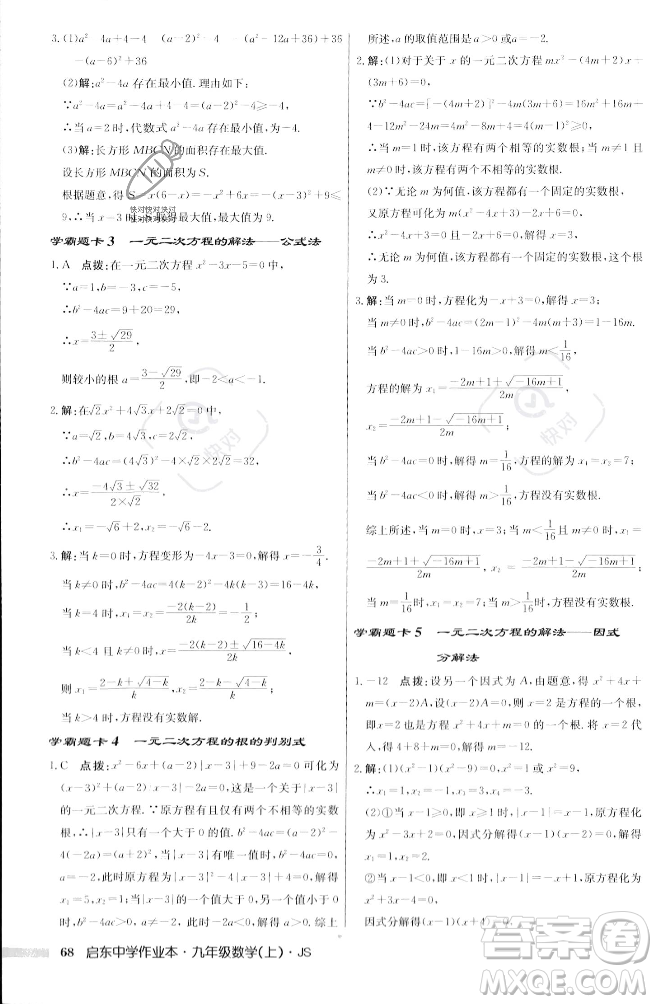 3.(1)a²-4a+4-4 (a-2)² -4 -(a-6)²+36
-(a-6)²
(2)解:a²-4a存在最小值.理由如下:
∵a²-4a=a²-4a+4-4=(a-2)²-4≥-4,
∴当a=2时,代数式a²-4a存在最小值为-4.
(3)解:长方形MBCN的面积存在最大值.
设长方形MBCN的面积为S.
根据题意,得S=x(6-x)=-(x-3)²+9≤
9,∴当x=3时,S取得最大值,最大值为9.
学霸题卡3 一元二次方程的解法——公式法
1.A 点拨:在一元二次方程x²-3x-5=0中,
∵a=1,b=-3,c=-5,
∴b²-4ac=9+20=29,
∴x=(3±√29)/2,
则较小的根a=(3-√29)/2,即-1.5<a<-1.
2.解:在√2x²+4√3x-2√2=0中,
∵a=√2,b=4√3,c=-2√2,
∴b²-4ac=(4√3)²-4×√2×(-2√2)=64,
∴x=(-4√3±√64)/(2×√2),
∴x₁=-√6+2√2,x₂=-√6-2√2.
3.解:当k=0时,方程变形为-4x-3=0,解得x=-3/4.
当k≠0时,b²-4ac=4(k-2)²-4k(k-3)=16-4k,
当k=4时,x₁=x₂=-2(k-2)/2k=-1/2;
当k<4时,x=(-2(k-2)±√(16-4k))/2k,
则x₁=(2-k+√(4-k))/k,x₂=(2-k-√(4-k))/k;
当k>4时,方程没有实数解.
学霸题卡4 一元二次方程的根的判别式
1.C 点拨:x²-6x+(a-2)|x-3|+9-2a=0可化为
(x-3)²+(a-2)|x-3|-2a=0,这是一个关于|x-
3|的一元二次方程.∵原方程有且仅有两个不相等的
实数根,∴|x-3|只有一个大于0的实数根.
∴当b²-4ac=0时,|x-3|有唯一的值,(a-2)²-
4(-2a)=0,解得a=-2,此时原方程的解为
x₁=5,x₂=1,当|x-3|的一个根大于0,另一个小于
0时,-2a<0,此时原方程也有两个解,解得a>0,综上
所述,a的取值范围是a>0或a=-2.
2.解:(1)对于关于x的一元二次方程mx²-(4m+2)x+
(3m+6)=0,
∵b²-4ac=[-(4m+2)]²-4m(3m+6)=4(m-
1)²≥0,
∴当m=1时,该方程有两个相等的实数根;
当m≠1时,该方程有两个不相等的实数根.
(2)无论m为何值,该方程都有一个固定的实数根.
又原方程可化为(x-3)(mx-m-2)=0,
∴无论m为何值,该方程都有一个固定的实数根,值为
3.
3.解:当m=0时,方程化为-x+3=0,解得x=3;
当m≠0时,b²-4ac=(2m-1)²-4m(m+3)=-16m+1,
当b²-4ac>0时,解得m<1/16,
方程的解为x₁=(-2m+1+√(-16m+1))/2m,
x₂=(-2m+1-√(-16m+1))/2m;
当b²-4ac=0时,解得m=1/16,方程的解为x₁=x₂=7;
当b²-4ac<0时,解得m>1/16,方程没有实数根.
综上所述,当m=0时,x=3;当m<1/16且m≠0时,x₁=
(-2m+1+√(-16m+1))/2m,x₂=(-2m+1-√(-16m+1))/2m;
当m=1/16时,x₁=x₂=7;当m>1/16时,方程没有实数根.
学霸题卡5 一元二次方程的解法——因式
分解法
1.-12 点拨:设另一个因式为A,由题意,得x²+4x+
m=(x-2)A,即方程x²+4x+m=0有一个解为2.将2
代入,得4+8+m=0,解得m=-12.
2.解:(1)(x²-1)(x²-9)或x²-1=0或x²=9,
x₃=3,x₄=-3.
(2)①当x-1≥0,即x≥1时,原方程化为(x-1)²-
(x-1)=0,因式分解得(x-1)(x-2)=0,解得
x₁=1,x₂=2.
②当x-1<0,即x<1时,原方程可化为(x-1)²+(x-1)=0,
因式分解得(x-1)x=0,解得x₃=1(舍去),
68 启东中学作业本·九年级数学(上)·JS
快对
作业帮
答案